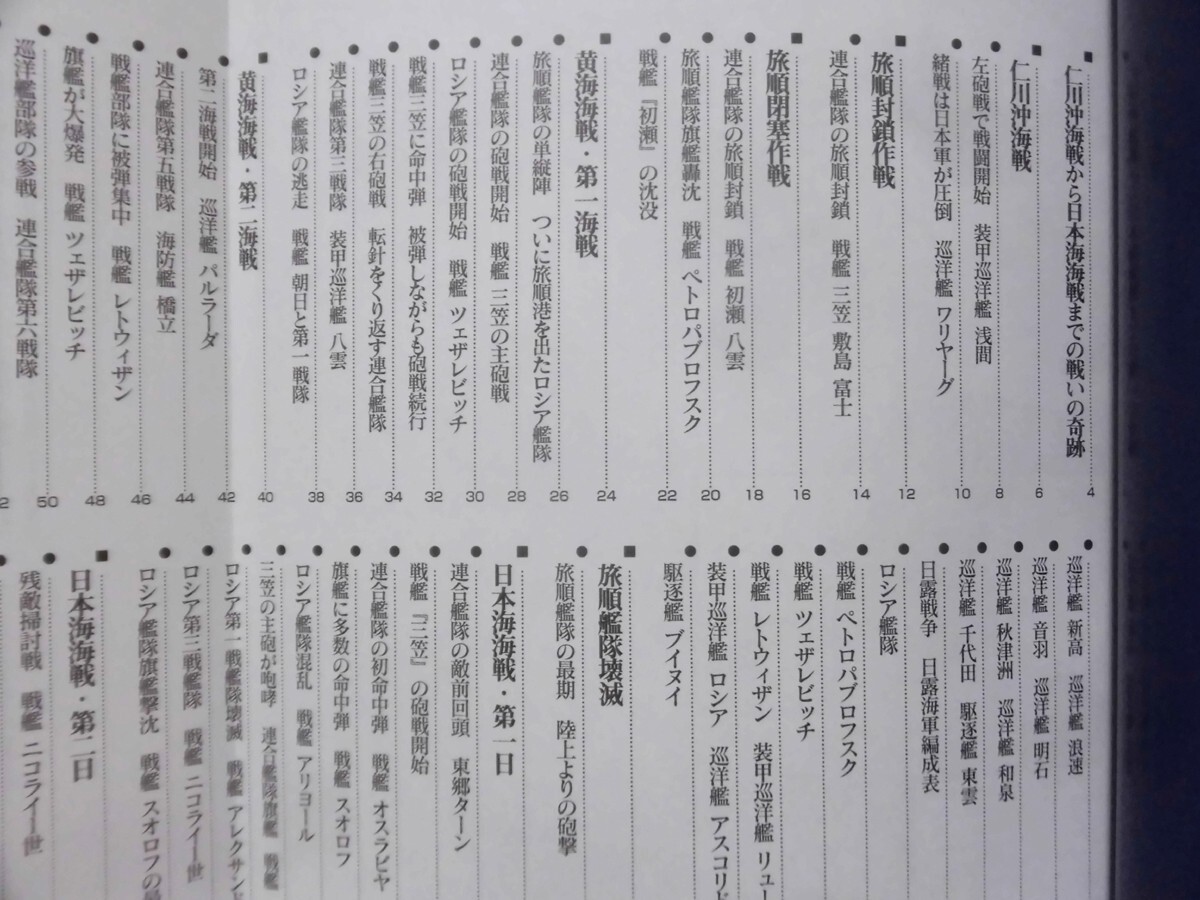 ■仁川沖海戦から日本海海戦までの戦いの奇跡 4
■仁川沖海戦 6
●左砲戦で戦闘開始 装甲巡洋艦 浅間 8
●緒戦は日本軍が圧倒 巡洋艦 ワリヤーグ 10
■旅順封鎖作戦 12
●連合艦隊の旅順封鎖 戦艦 三笠 敷島 富士 14
■旅順閉塞作戦 16
●連合艦隊の旅順封鎖 戦艦 初瀬 八雲 18
●旅順艦隊旗艦轟沈 戦艦 ペトロパブロフスク 20
●戦艦『初瀬』の沈没 22
■黄海海戦・第一海戦 24
●旅順艦隊の単縦陣 ついに旅順港を出たロシア艦隊 26
●連合艦隊の砲戦開始 戦艦 三笠の主砲戦 28
●ロシア艦隊の砲戦開始 戦艦 ツェザレビッチ 30
●戦艦三笠に命中弾 被弾しながらも砲戦続行 32
●戦艦三笠の右砲戦 転針をくり返す連合艦隊 34
●連合艦隊第三戦隊 装甲巡洋艦 八雲 36
●ロシア艦隊の逃走 戦艦 朝日と第一戦隊 38
■黄海海戦・第二海戦 40
●第二海戦開始 巡洋艦 パルラーダ 42
●連合艦隊第五戦隊 海防艦 橋立 44
●戦艦部隊に被弾集中 戦艦 レトウィザン 46
●旗艦が大爆発 戦艦 ツェザレビッチ 48
●巡洋艦部隊の参戦 連合艦隊第六戦隊 50
●巡洋艦 新高 巡洋艦 浪速
●巡洋艦 音羽 巡洋艦 明石
●巡洋艦 秋津洲 巡洋艦 和泉
●巡洋艦 千代田 駆逐艦 東雲
●日露戦争 日露海軍編成表
●ロシア艦隊
●戦艦 ペトロパブロフスク
●戦艦 ツェザレビッチ
●戦艦 レトウィザン 装甲巡洋艦 リュー
●装甲巡洋艦 ロシア 巡洋艦 アスコリド
●駆逐艦 ブイヌイ
■旅順艦隊壊滅
●旅順艦隊の最期 陸上よりの砲撃
■日本海海戦・第一日
●連合艦隊の敵前回頭 東郷ターン
●戦艦『三笠』の砲戦開始
●連合艦隊の初命中弾 戦艦 オスラビヤ
●旗艦に多数の命中弾 戦艦 スオロフ
●ロシア艦隊混乱 戦艦 アリヨール
●三笠の主砲が咆哮 連合艦隊旗艦 戦艦
●ロシア第一戦艦隊壊滅 戦艦 アレクサンド
●ロシア第三戦艦隊 戦艦 ニコライ一世
●ロシア艦隊旗艦撃沈 戦艦 スオロフの
■日本海海戦・第二日
●残敵掃討戦 戦艦 ニコライ一世